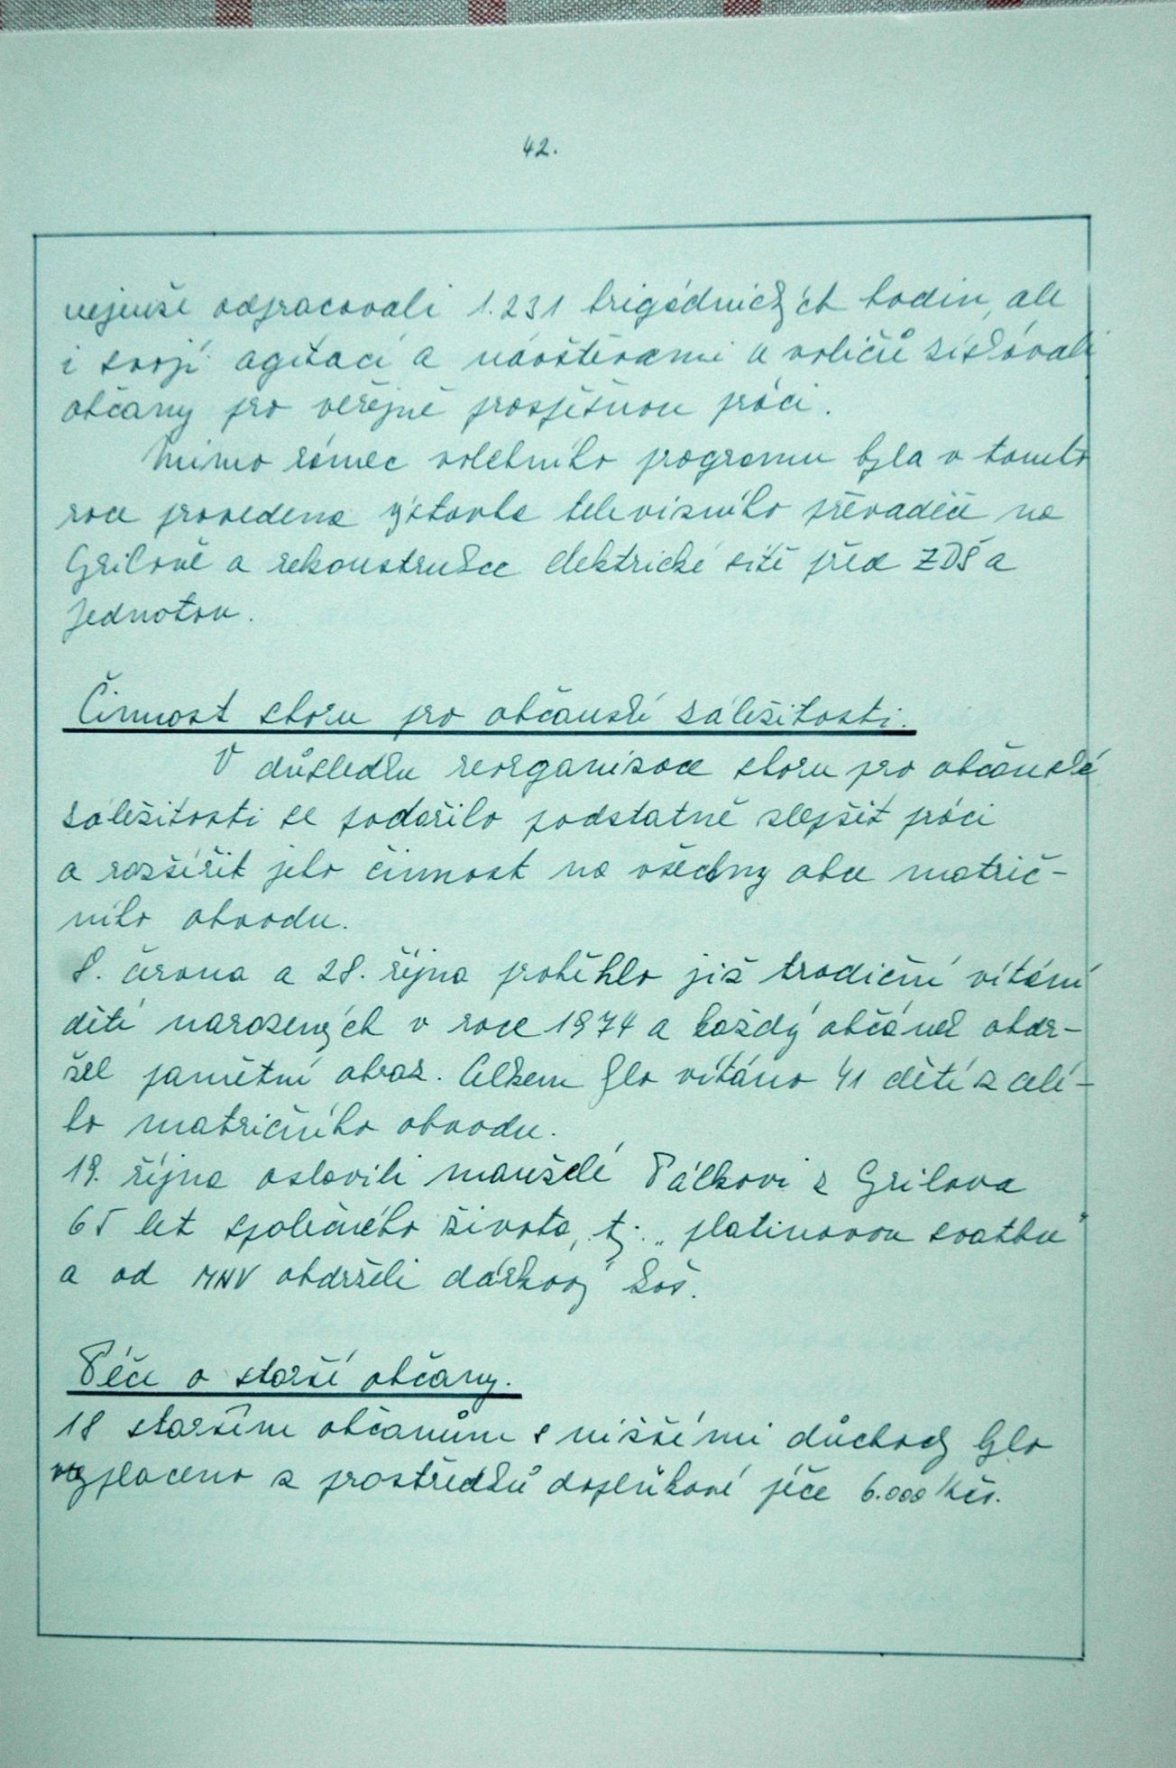 42.
nejenže odpracovali 1.231 brigádnických hodin, ale
i svojí agitací a návštěvami u voličů získávali
občany pro veřejně prospěšnou práci.
Mimo rámec volebního programu byla v tomto
roce provedena výstavba televisního převaděče na
Grilově a rekonstrukce elektrické sítě před ZDŠ a
Jednotou.
Činnost sboru pro občanské záležitosti.
V důsledku reorganisace sboru pro občanské
záležitosti se podařilo podstatně zlepšit práci
a rozšířit jeho činnost na všechny obce matrič-
ního obvodu.
8. června a 28. října proběhlo již tradiční vítání
dětí narozených v roce 1974 a každý občánek obdr-
žel pamětní obraz. Celkem bylo vítáno 41 dětí z celé-
ho matričního obvodu.
19. října oslavili manželé Pálkovi z Grilova
65 let společného života, tj. „platinovou svatbu"
a od MNV obdrželi dárkový koš.
Péče o starší občany.
18 starším občanům s nižšími důchody bylo
vyplaceno z prostředků doplňkové péče 6.000 Kčs.